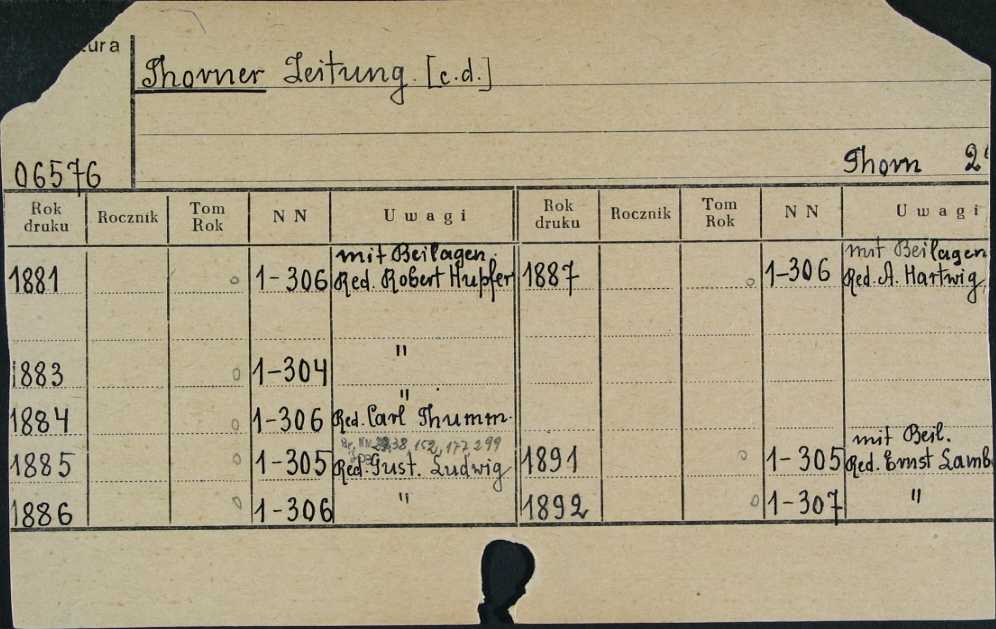 Thorner Zeitung. [c.d.]
06576
Thorn
Rok druku Rocznik Tom Rok NN Uwagi Rok druku Rocznik Tom Rok NN Uwagi
mit Beilagen, mit Beilagen
1881 o 1-306 Red. Robert Hupfer 1887 o 1-306 Red. A. Hartwig
"
1883 o 1-304
"
1884 o 1-306 Red. Carl Thumm.
38, 152, 177, 299 mit Beil.
1885 o 1-305 Red. Gust. Ludwig 1891 o 1-305 Red. Ernst
1886 o 1-306 " 1892 o 1-307 "